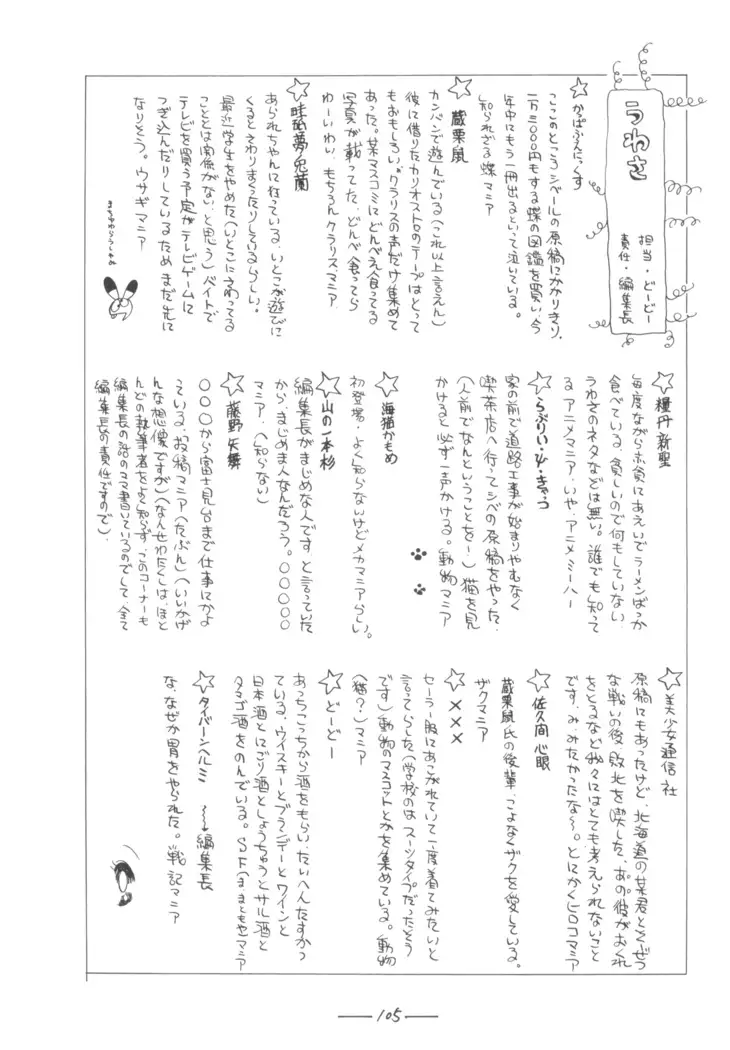 うわさ
担当・どーどー
責任・編集長
☆かっぱぶえにっくす
ここのところシベールの原稿にかかりきり。
一万三〇〇〇円もする蝶の図鑑を買い、今
年中にもう一冊出るといって泣いている。
知られざる蝶マニア
☆蔵栗鼠
カンバンで遊んでいる（これ以上言えん）
彼に借りたカリオストロのテープはとって
もおもしろい。クラリスの声だけ集めて
あった。某マスコミにどんべえ食ってる
写真が載ってた。どんべ食ってら
わーいわい。もちろんクラリスマニア
☆畦夢兎蘭
あられちゃんに狂っている。いとこが遊びに
くるとさわりまくったりしているらしい。
最近学生をやめた（いとこにさわってる
こととは関係がない、と思う）バイトで
テレビを買う予定がテレビゲームに
つぎ込んだりしているためまだ先に
なりそう。ウサギマニア
☆糧丹新聖
毎度ながら赤貧にあえいでラーメンばっか
食べている。貧しいので何もしていない。
うわさのネタなどは無い。誰でも知って
るアニメマニア、いや、アニメミーハー
☆らぶりい・い・きゃっつ
家の前で道路工事が始まりやむなく
喫茶店へ行ってシベの原稿をやった。
（人前でなんということを！）猫を見
かけると必ず一声かける。動物マニア
☆海猫かもめ
初登場。よく知らないけどメカマニアらしい。
☆山の一本杉
編集長がまじめな人です、と言っていた
から、まじめ人なんだろう。〇〇〇〇〇
マニア。（知らない）
☆藤野矢舞
〇〇〇から富士見台まで仕事にかよ
っている。投稿マニア（たぶん）（いいかげ
んな想像ですが）（なんせわたくしは、ほと
んどの執筆者をよく知らず、このコーナーも
編集長の話のコマ書いているのでして、全て
編集長の責任ですので）。
☆美少女通信社
原稿にもあったけど、北海道の某君とくぜつ
な戦いの後、敗北を喫した。あの彼がおくれ
をとるなど我々にはとても考えられないこと
です。み、みたかったな～。とにかくヒロコマニア
☆佐久間心眼
蔵栗鼠氏の後輩、こよなくザクを愛している。
ザクマニア
☆×××
セーラー服にあこがれていて一度着てみたいと
言ってらした（学校のはスーツタイプだったそう
です）動物のマスコットとかを集めている。動物
（猫？）マニア
☆どーどー
あっちこっちから酒をもらい、たいへんたすかっ
ている。ウイスキーとブランデーとワインと
日本酒とにごり酒としょうちゅうとサル酒と
タマゴ酒をのんでいる。ＳＦ（ま、まともや）マニア
☆タイバーンヘルミ　～編集長
な、なぜか胃をやられた。戦記マニア
105